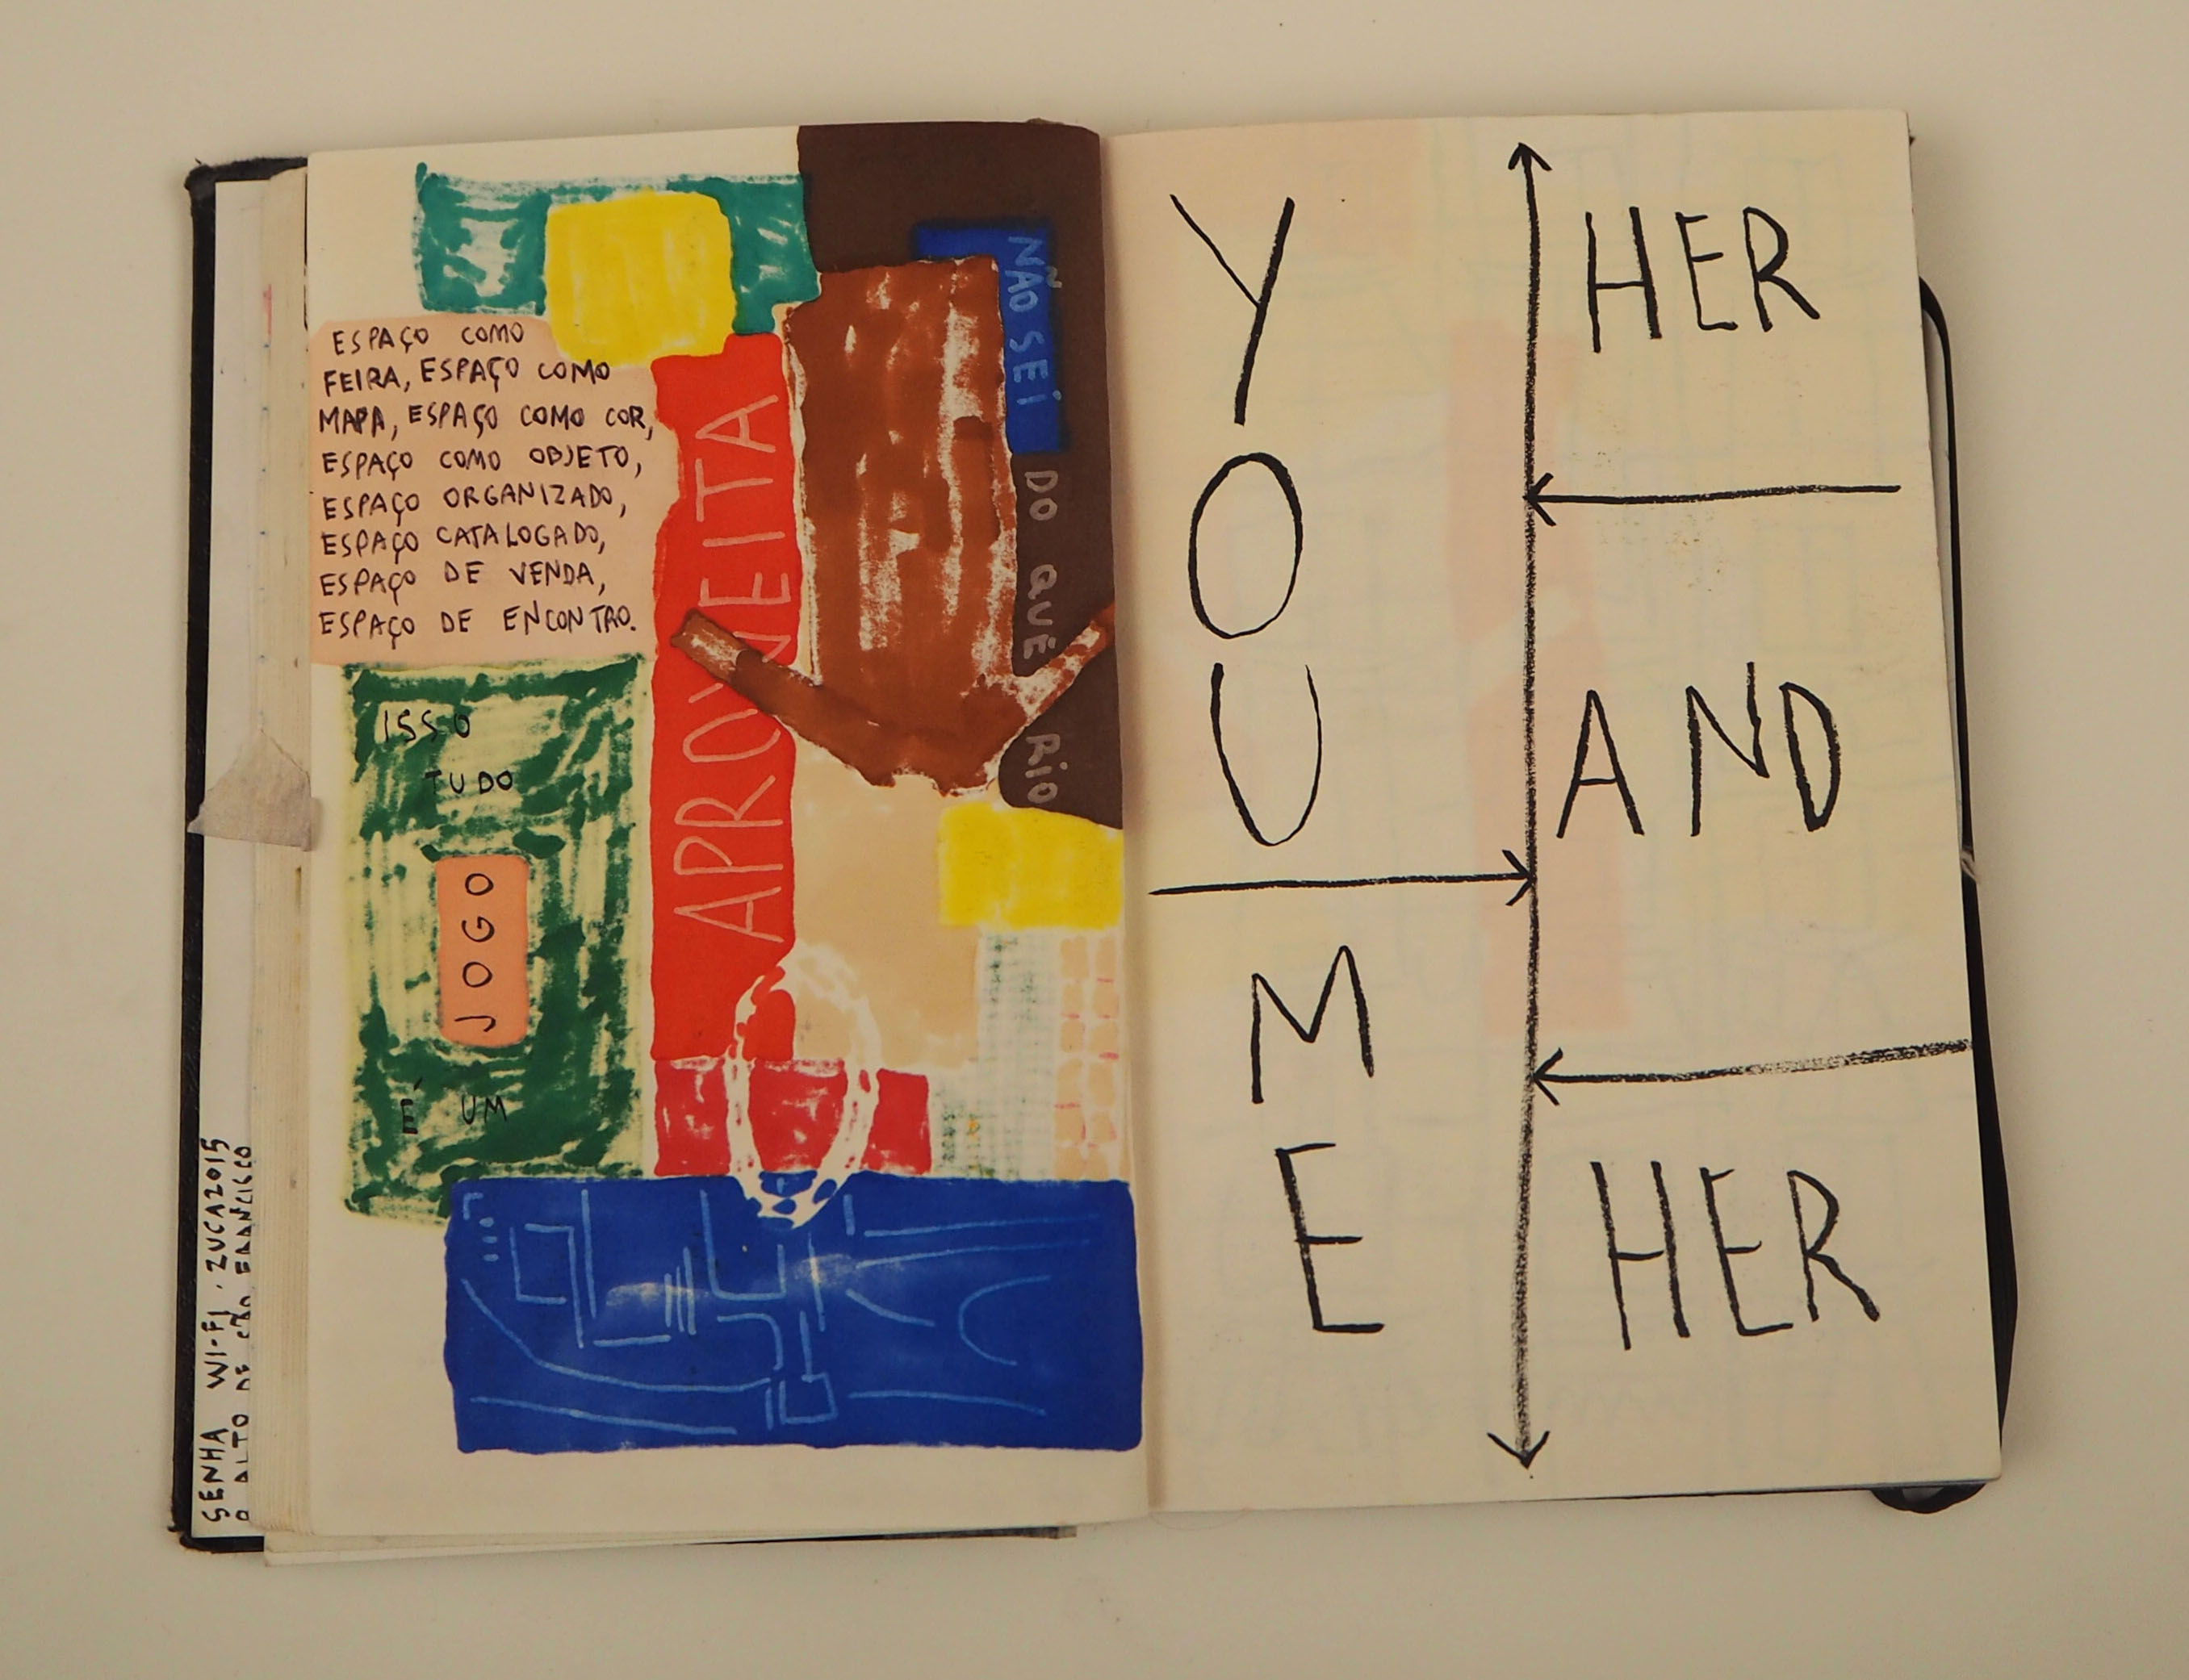 ESPAÇO COMO
FEIRA, ESPAÇO COMO
MAPA, ESPAÇO COMO COR,
ESPAÇO COMO OBJETO,
ESPAÇO ORGANIZADO,
ESPAÇO CATALOGADO,
ESPAÇO DE VENDA,
ESPAÇO DE ENCONTRO.
ISSO
TUDO
JOGO
É UM
APROVEITA
NÃO SEI DO QUÊ RIO
SENHA WI-FI. ZUCA2015
ALTO DE SÃO FRANCISCO
YOU
ME
HER
AND
HER